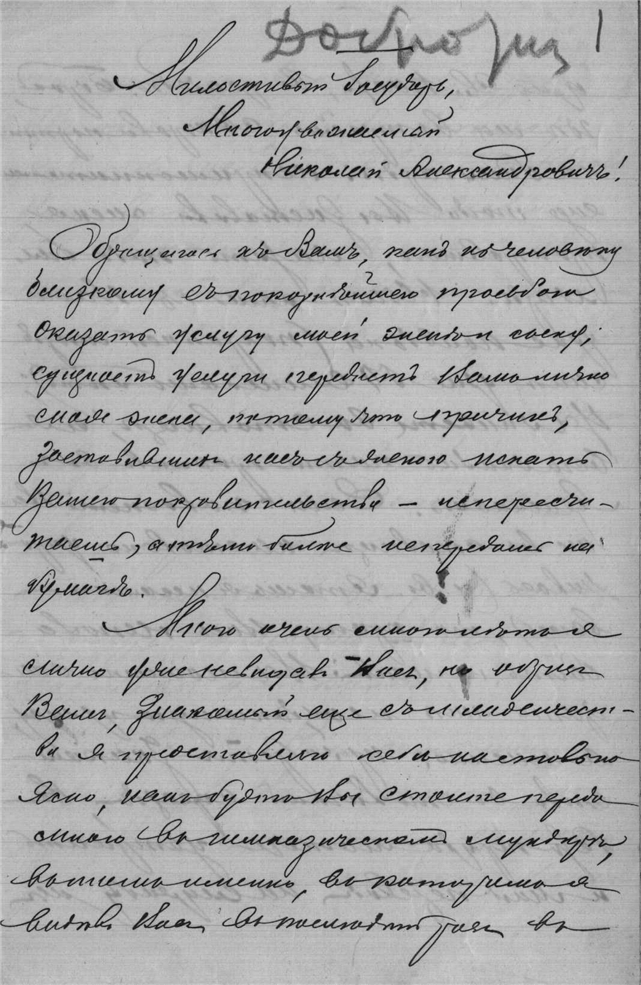 1
Милостивый Государь,
Многоуважаемый
Николай Александровичъ!
Обращаюсь къ Вамъ, какъ къ человѣку
близкому съ покорнѣйшею просьбою
оказать услугу моей женѣ и сыну,
сущность услуги передастъ Вамъ лично
моя жена, потому что причинъ,
заставившихъ насъ съ женою искать
Вашего покровительства – не пересчи-
таешь, а тѣмъ болѣе не передашь на
бумагѣ.
Много очень много лѣтъ я
лично уже не видавъ Васъ, но образъ
Вашъ, знакомый еще съ младенчест-
ва я представляю себѣ настолько
ясно, какъ будто Вы стоите передо
мною въ гимназическомъ мундирѣ,
въ томъ именно, въ которомъ я
видѣлъ Васъ въ послѣдній разъ въ